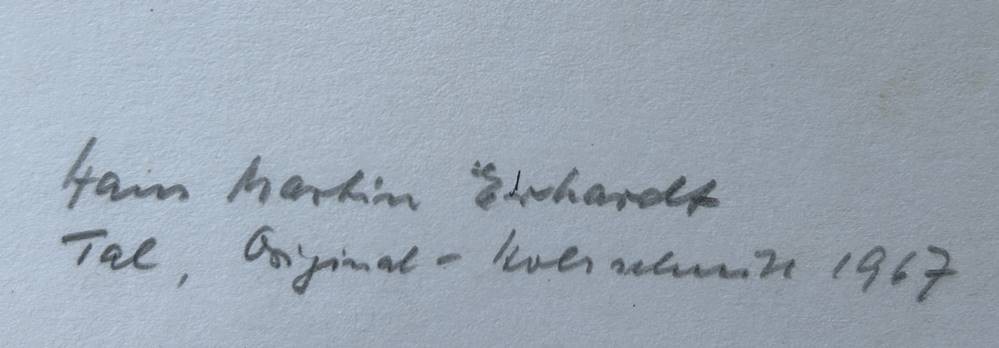 Hans Martin Erhardt
Tal, Original - Holzschnitt 1967